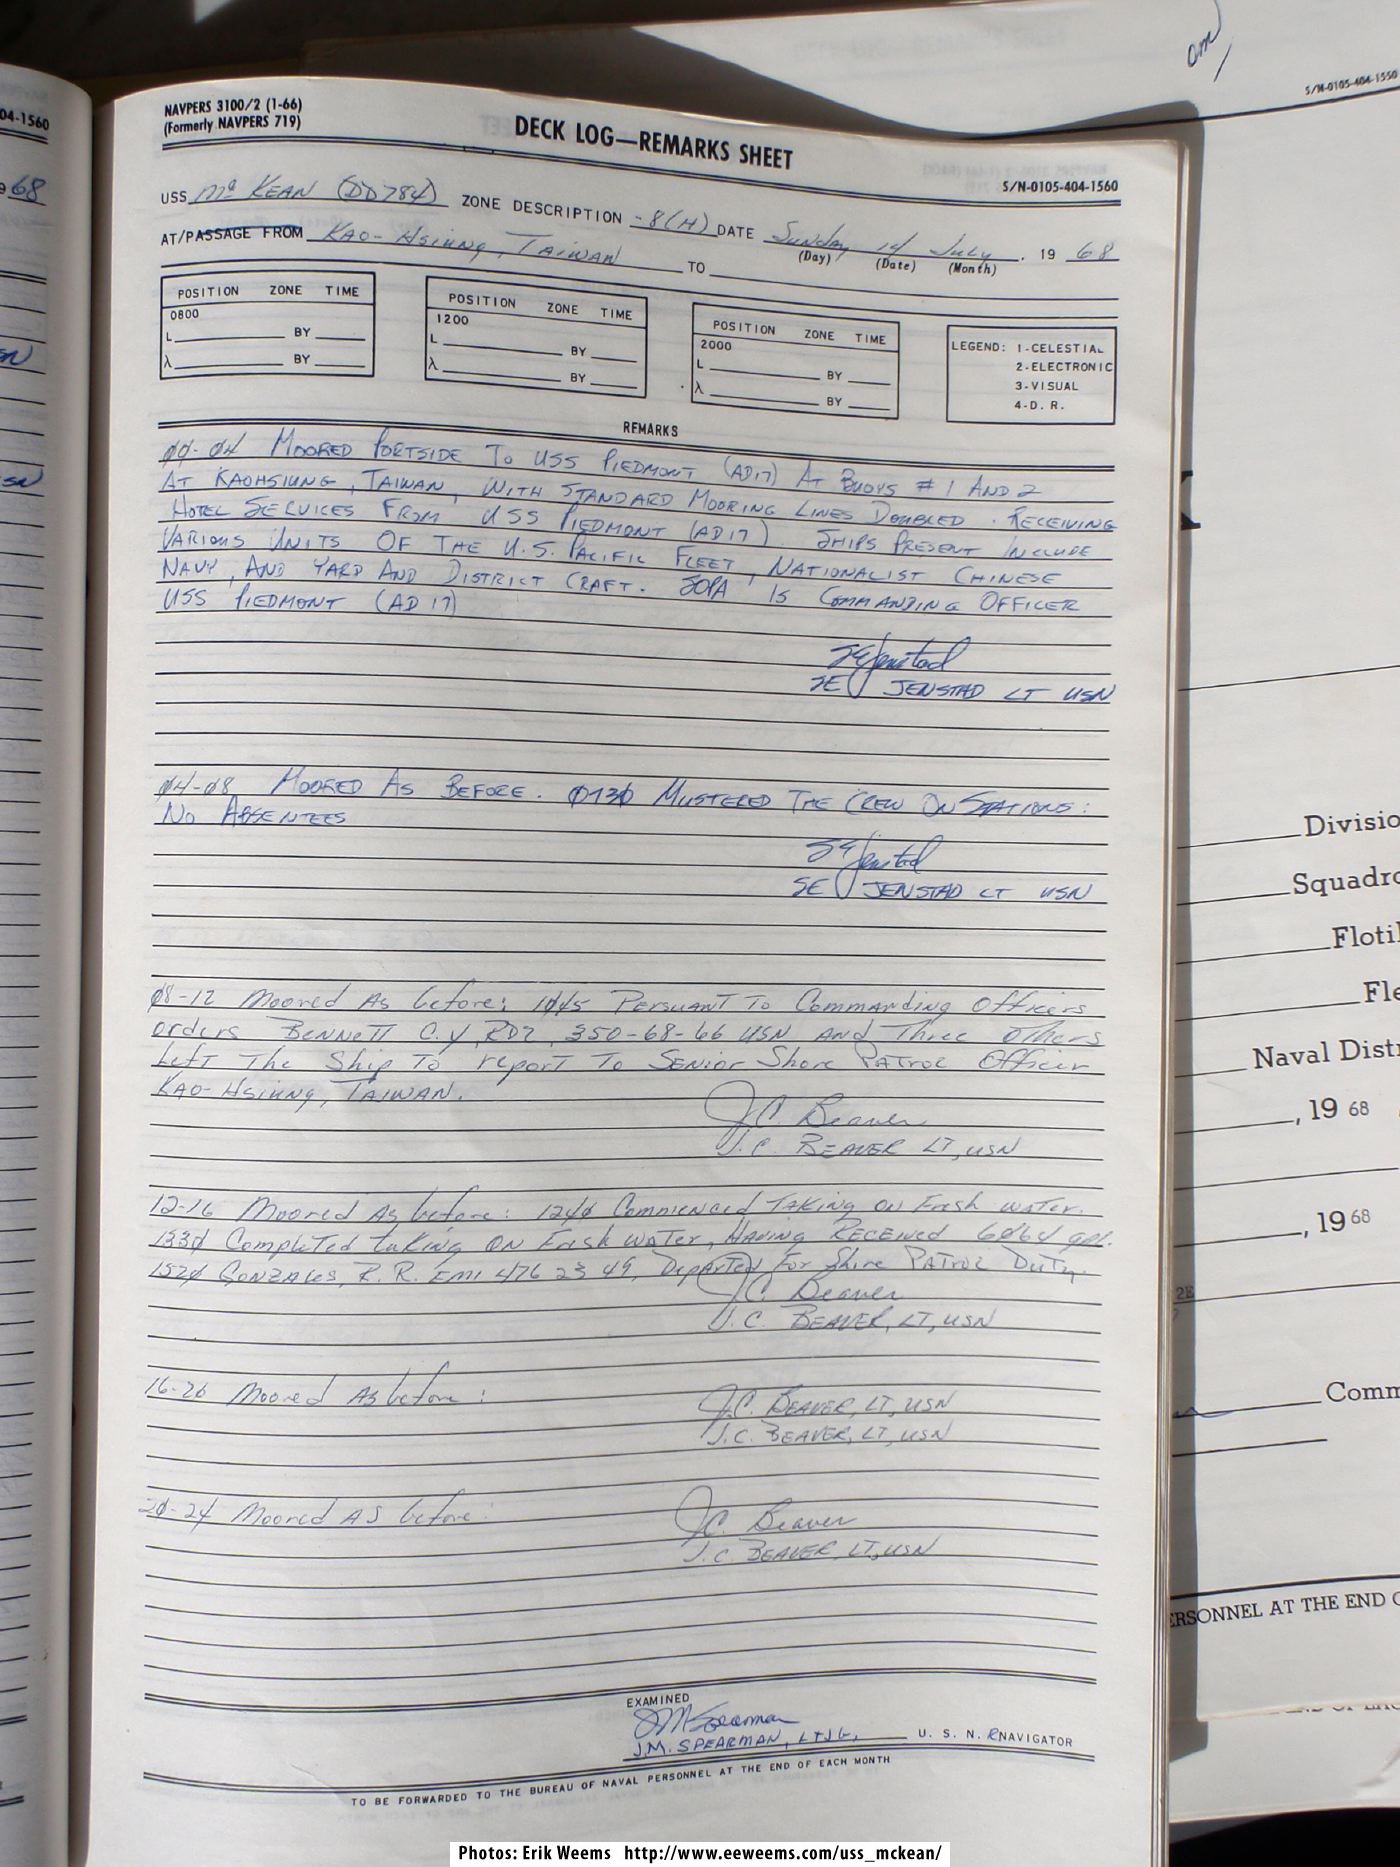 NAVPERS 3100/2 (1-66)
(Formerly NAVPERS 719)
DECK LOG—REMARKS SHEET
S/N-0105-404-1560
USS Mc KEAN (DD784) ZONE DESCRIPTION -8(H) DATE Sunday 14 July, 19 68
(Day) (Date) (Month)
AT/PASSAGE FROM KAO-HSIUNG, TAIWAN TO
POSITION ZONE TIME
0800
L BY
λ BY
POSITION ZONE TIME
1200
L BY
λ BY
POSITION ZONE TIME
2000
L BY
λ BY
LEGEND: 1-CELESTIAL
2-ELECTRONIC
3-VISUAL
4-D. R.
REMARKS
00-04 MOORED PORTSIDE TO USS PIEDMONT (AD17) AT BUOYS # 1 AND 2
AT KAOHSIUNG, TAIWAN, WITH STANDARD MOORING LINES DOUBLED. RECEIVING
HOTEL SERVICES FROM USS PIEDMONT (AD17). SHIPS PRESENT INCLUDE
VARIOUS UNITS OF THE U.S. PACIFIC FLEET, NATIONALIST CHINESE
NAVY, AND YARD AND DISTRICT CRAFT. SOPA IS COMMANDING OFFICER
USS PIEDMONT (AD 17)
SE Jenstad
SE JENSTAD LT USN
04-08 MOORED AS BEFORE. 0730 MUSTERED THE CREW ON STATIONS:
NO ABSENTEES
SE Jenstad
SE JENSTAD LT USN
08-12 Moored As before: 1045 PERSUANT TO Commanding Officers
orders BENNETT C.V, RD2, 350-68-66 USN AND Three Others
Left The Ship To report To SENIOR Shore PATROL Officer
KAO-HSIUNG, TAIWAN.
J.C. Beaver
J.C. BEAVER LT, USN
12-16 Moored As before: 1240 Commenced TAKING ON Fresh water.
1330 Completed taking ON Fresh water, HAVING RECEIVED 6064 gal.
1520 GONZALES, R.R. EM1 476 23 49, Departed For Shore PATROL DUTY.
J.C. Beaver
J.C. BEAVER, LT, USN
16-20 Moored As before:
J.C. BEAVER, LT, USN
J.C. BEAVER, LT, USN
20-24 Moored AS before:
J.C. Beaver
J.C. BEAVER, LT, USN
EXAMINED
JM Spearman
J.M. SPEARMAN, LTJG, U. S. N. R NAVIGATOR
TO BE FORWARDED TO THE BUREAU OF NAVAL PERSONNEL AT THE END OF EACH MONTH
04-1560
68
SN
SN
am
S/N-0105-404-1550
Divisio
Squadro
Floti
Fle
Naval Distr
, 19 68
, 19 68
2E
Comm
ERSONNEL AT THE END O
Photos: Erik Weems http://www.eeweems.com/uss_mckean/